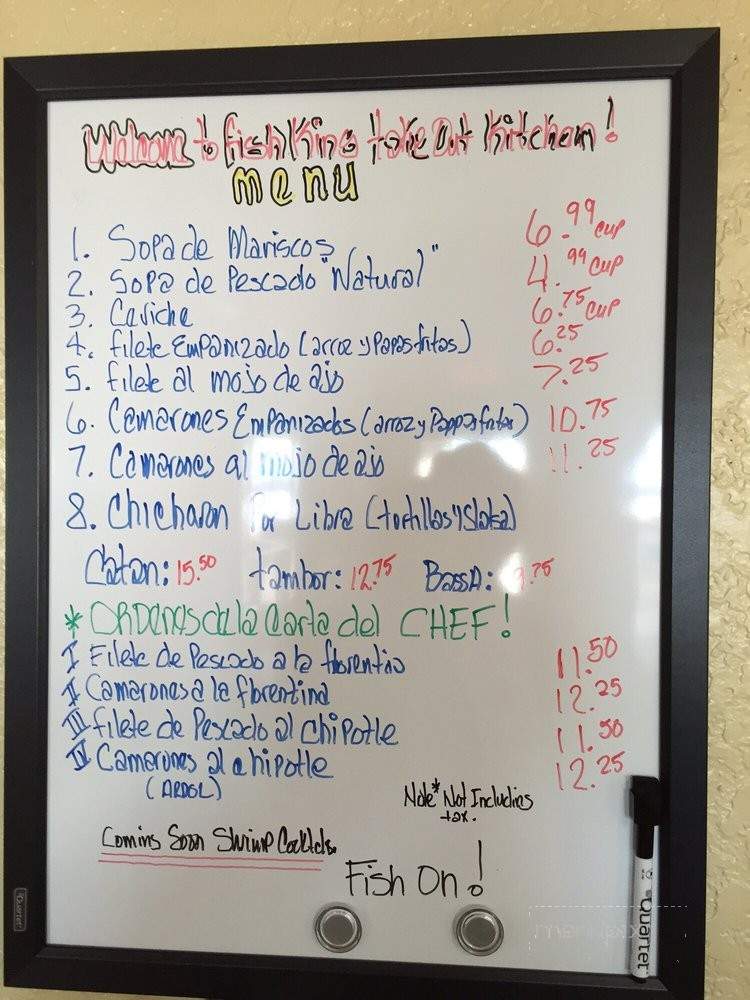 Welcome to fish King take Out Kitchen!
menu
1. Sopa de Mariscos 6.99 cup
2. Sopa de Pescado "Natural" 4.99 cup
3. Caviche 6.75 cup
4. filete Empanizado (arroz y Papas fritas) 6.25
5. filete al mojo de ajo 7.25
6. Camarones Empanizados (arroz y Pappas fritas) 10.75
7. Camarones al mojo de ajo 11.25
8. Chicharon Por Libra (tortillas y Slalsa)
Catan: 15.50 tambor: 12.75 BassA: .75
* Ordenes de la Carta del CHEF!
I Filete de Pescado a la florentina 11.50
II Camarones a la florentina 12.25
III filete de Pescado al chipotle 11.50
IV Camarones al chipotle 12.25
(ARBOL)
Note* Not Includins
tax.
Comins Soon Shrimp Cocktels.
Fish On!
Quartet
Quartet